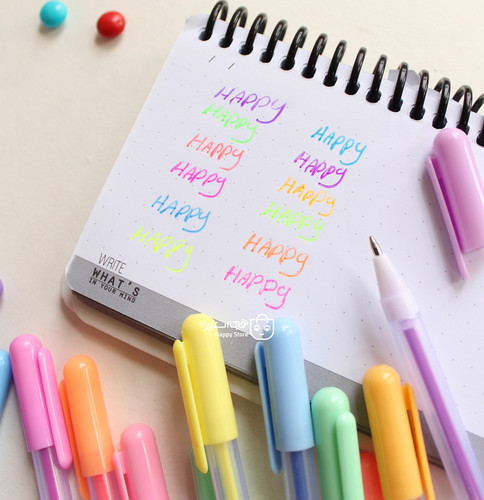 HAPPY
HAPPY
HAPPY
HAPPY
HAPPY
HAPPY
HAPPY
HAPPY
HAPPY
HAPPY
HAPPY
HAPPY
WRITE
WHAT'S
IN YOUR MIND
Happy Store